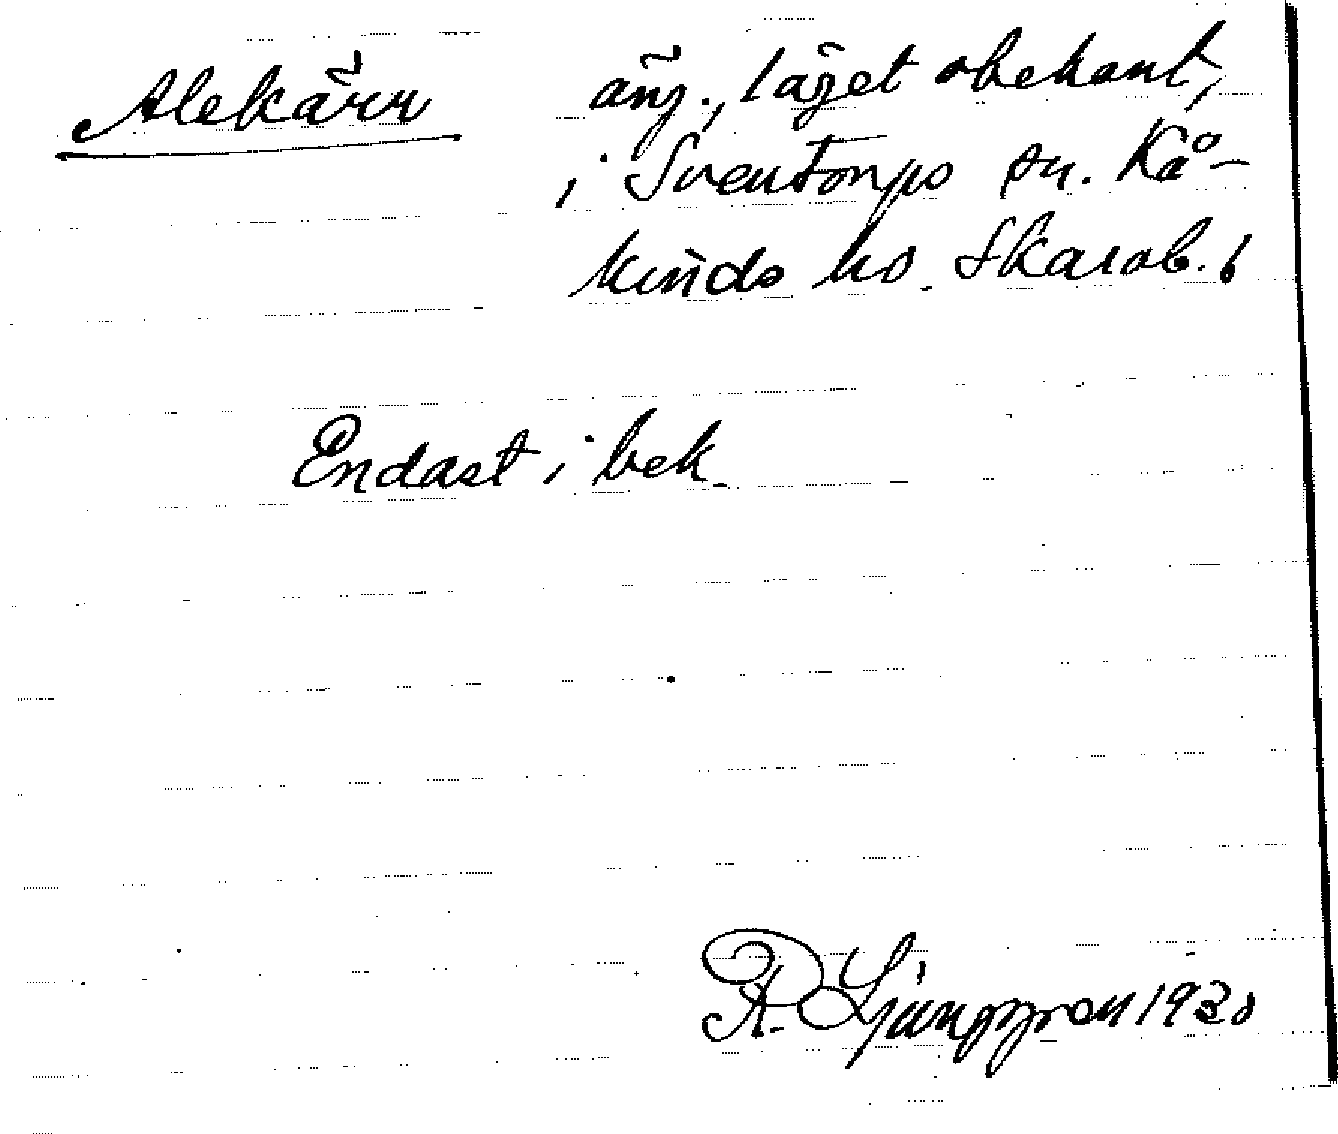 Alekärr äng., läget obekant,
i Sventorps sn. Kå-
kinds hd. Skarab. l
Endast i bek.
R. Ljunggren 1930